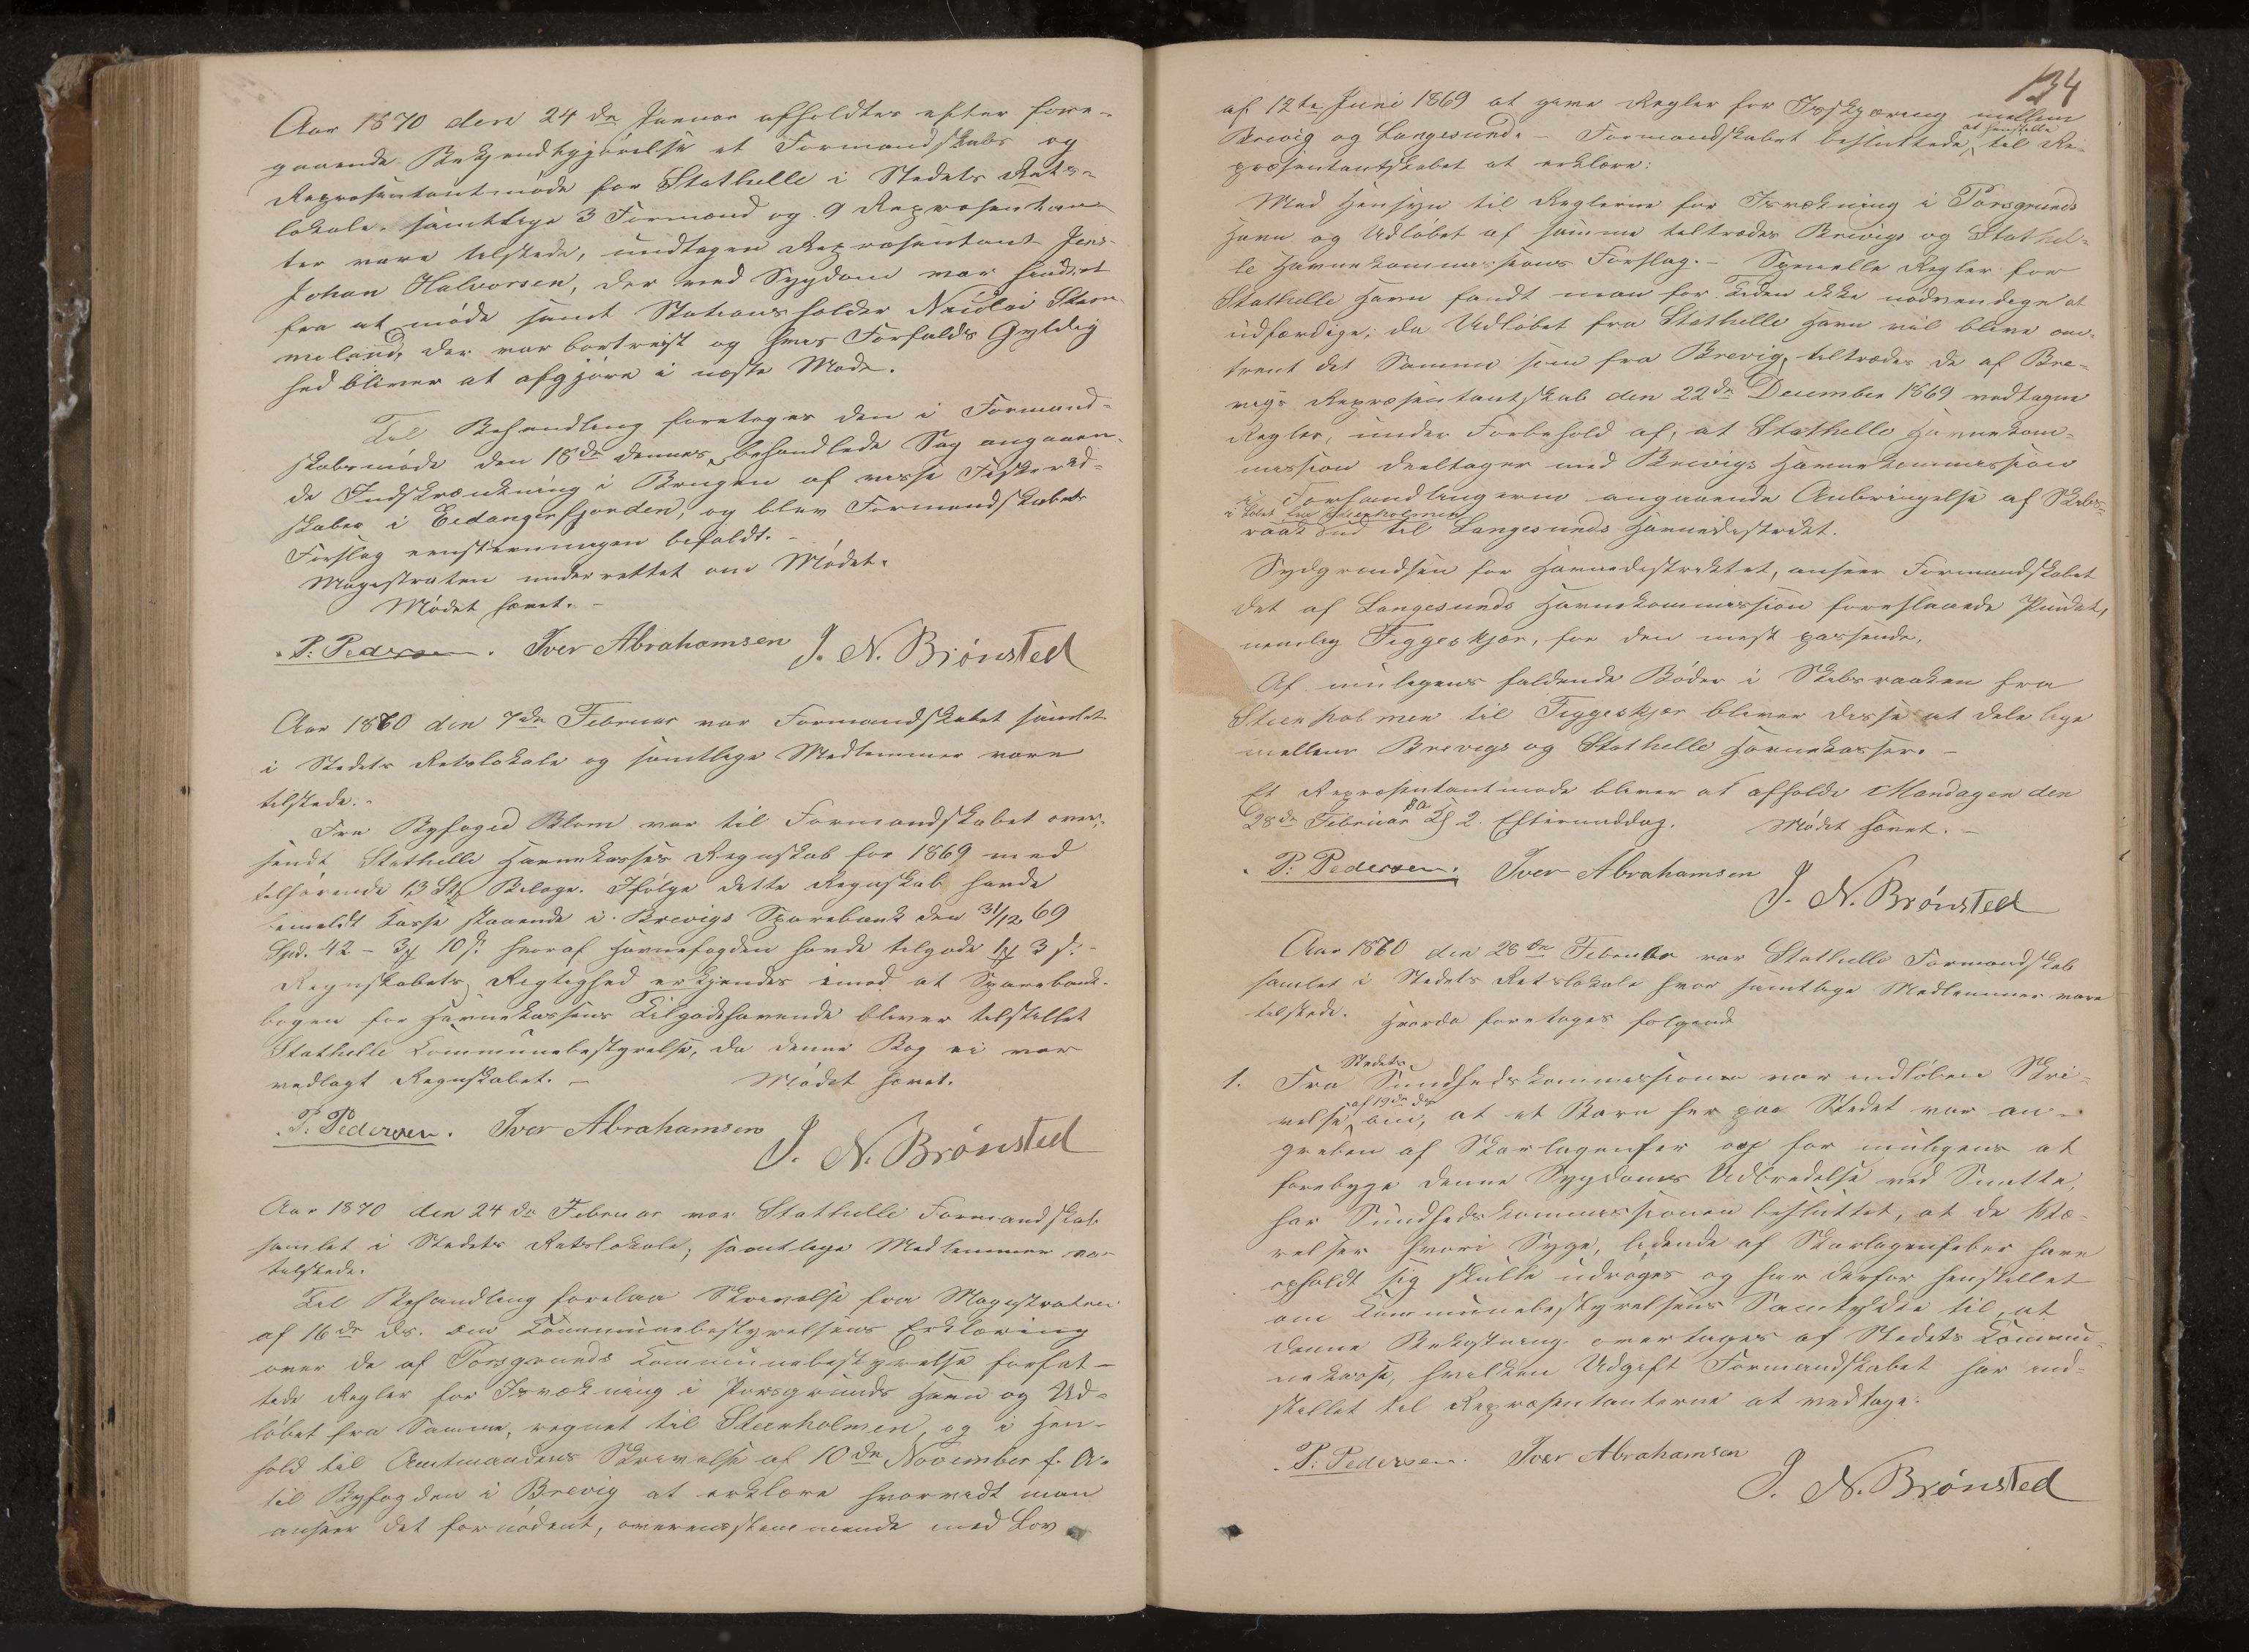 Aar 1870 den 24de Januar afholdtes efter fore-
gaaende Bekjendtgjörelse et Formandskabs og
Repræsentantmöde for Stathelle i Stedets Rets-
lokale. samtlige 3 Formænd og 9 Repræsentan-
ter vare tilstede, undtagen Repræsentant Jens
Johan Halvorsen, der ved Sygdom var hindret
fra at möde samt Stationsholder Nicolai
der var bortreist og hvis Forfalds Gyldig
hed bliver at afgjöre i næste Möde.
Til Behandling foretoges den i Formand-
skabsmöde den 18de dennes behandlede Sag angaaen-
de Indskrænkning i Brugen af visse Fiskered-
skaber i Eidangerfjorden, og blev Formandskabets
Forslag eenstemmigen bifaldt. -
Magistraten underrettet om Mödet.
Mödet hævet. -
P. Pedersen. Iver Abrahamsen J. N. Brönsted
Aar 1870 den 7de Februar var Formandskabet samlet
i Stedets Retslokale og samtlige Medlemmer vare
tilstede. -
Fra Byfoged Blom var til Formandskabet over-
sendt Stathelle Havnekasses Regnskab for 1869 med
tilhörende 13 Stk Bilage. Ifölge dette Regnskab havde
bemeldt Kasse staaende i Brevigs Sparebank den 31/12 69
Spd. 42 - 3 10 s. hvoraf Havnefogden havde tilgode 3 s. -
Regnskabets Rigtighed erkjendes imod at Sparebank-
bogen for Havnekassens Tilgodehavende bliver tilstillet
Stathelle Kommunebestyrelse, da denne Bog ei var
vedlagt Regnskabet. - Mödet hævet.
P. Pedersen. Iver Abrahamsen J. N. Brönsted
Aar 1870 den 24de Februar var Stathelle Formandskab
samlet i Stedets Retslokale, samtlige Medlemmer var
tilstede.
Til Behandling forelaa Skrivelse fra Magistraten
af 16de ds. om Kommunebestyrelsens Erklæring
over de af Porsgrunds Kommunebestyrelse forfat-
tede Regler for Isrækning i Porsgrunds Havn og Ud-
löbet fra Samme, regnet til Steenholmen, og i Hen-
hold til Amtmandens Skrivelse af 10de November f. A.
til Byfogden i Brevig at erklære hvorvidt man
anseer det fornödent, overensstemmende med Lov
134
af 12te Juni 1869 at give Regler for Isskjæring mellem
Brevig og Langesund. - Formandskabet besluttede at henstille til Re-
præsentantskabet at erklære:
Med Hensyn til Reglerne for Isrækning i Porsgrunds
Havn og Udlöbet af samme tiltrædes Brevigs og Stathel-
le Havnekommissions Forslag. - Specielle Regler for
Stathelle Havn fandt man for Tiden ikke nödvendige at
udfærdige; da Udlöbet fra Stathelle Havn vil blive om-
trent det Samme som fra Brevig, tiltrædes de af Bre-
vigs Repræsentantskab den 22de December 1869 vedtagne
Regler, under Forbehold af, at Stathelle Havnekom-
mission deeltager med Brevigs Havnekommission
i Forhandlingerne angaaende Anbringelse af Skibs-
i Löbet fra Steenholmen
raak ud til Langesunds Havnedistrikt.
Sydgrændsen for Havnedistriktet, anseer Formandskabet
det af Langesunds Havnekommission foreslaaede Punkt,
nemlig Figgeskjær, for den mest passende.
Af muligens faldende Böder i Skibsraaken fra
Steenholmen til Figgeskjær bliver disse at dele lige
mellem Brevigs og Stathelle Havnekasser. -
Et Repræsentantmöde bliver at afholde Mandagen den
28de Februar Kl 2. Eftermiddag. Mödet hævet. -
P. Pedersen. Iver Abrahamsen
J. N. Brönsted
Aar 1870 den 28de Februar var Stathelle Formandskab
samlet i Stedets Retslokale hvor samtlige Medlemmer vare
tilstede. Hvorda foretoges fölgende
1. Fra Stedets Sundhedskommission var indlöben Skri-
velse af 19de ds om, at et Barn her paa Stedet var an-
greben af Skarlagenfer og for muligens at
forebygge denne Sygdoms Udbredelse ved Smitte,
har Sundhedskommissionen besluttet, at de Væ-
relser hvori Syge, lidende af Skarlagenfeber have
opholdt sig skulle udröges og har derfor henstillet
om Kommunebestyrelsens Samtykke til, at
denne Bekostning overtages af Stedets Kommu-
nekasse, hvilken Udgift Formandskabet har ind-
stillet til Repræsentanterne at vedtage.
P. Pedersen. Iver Abrahamsen
J. N. Brönsted